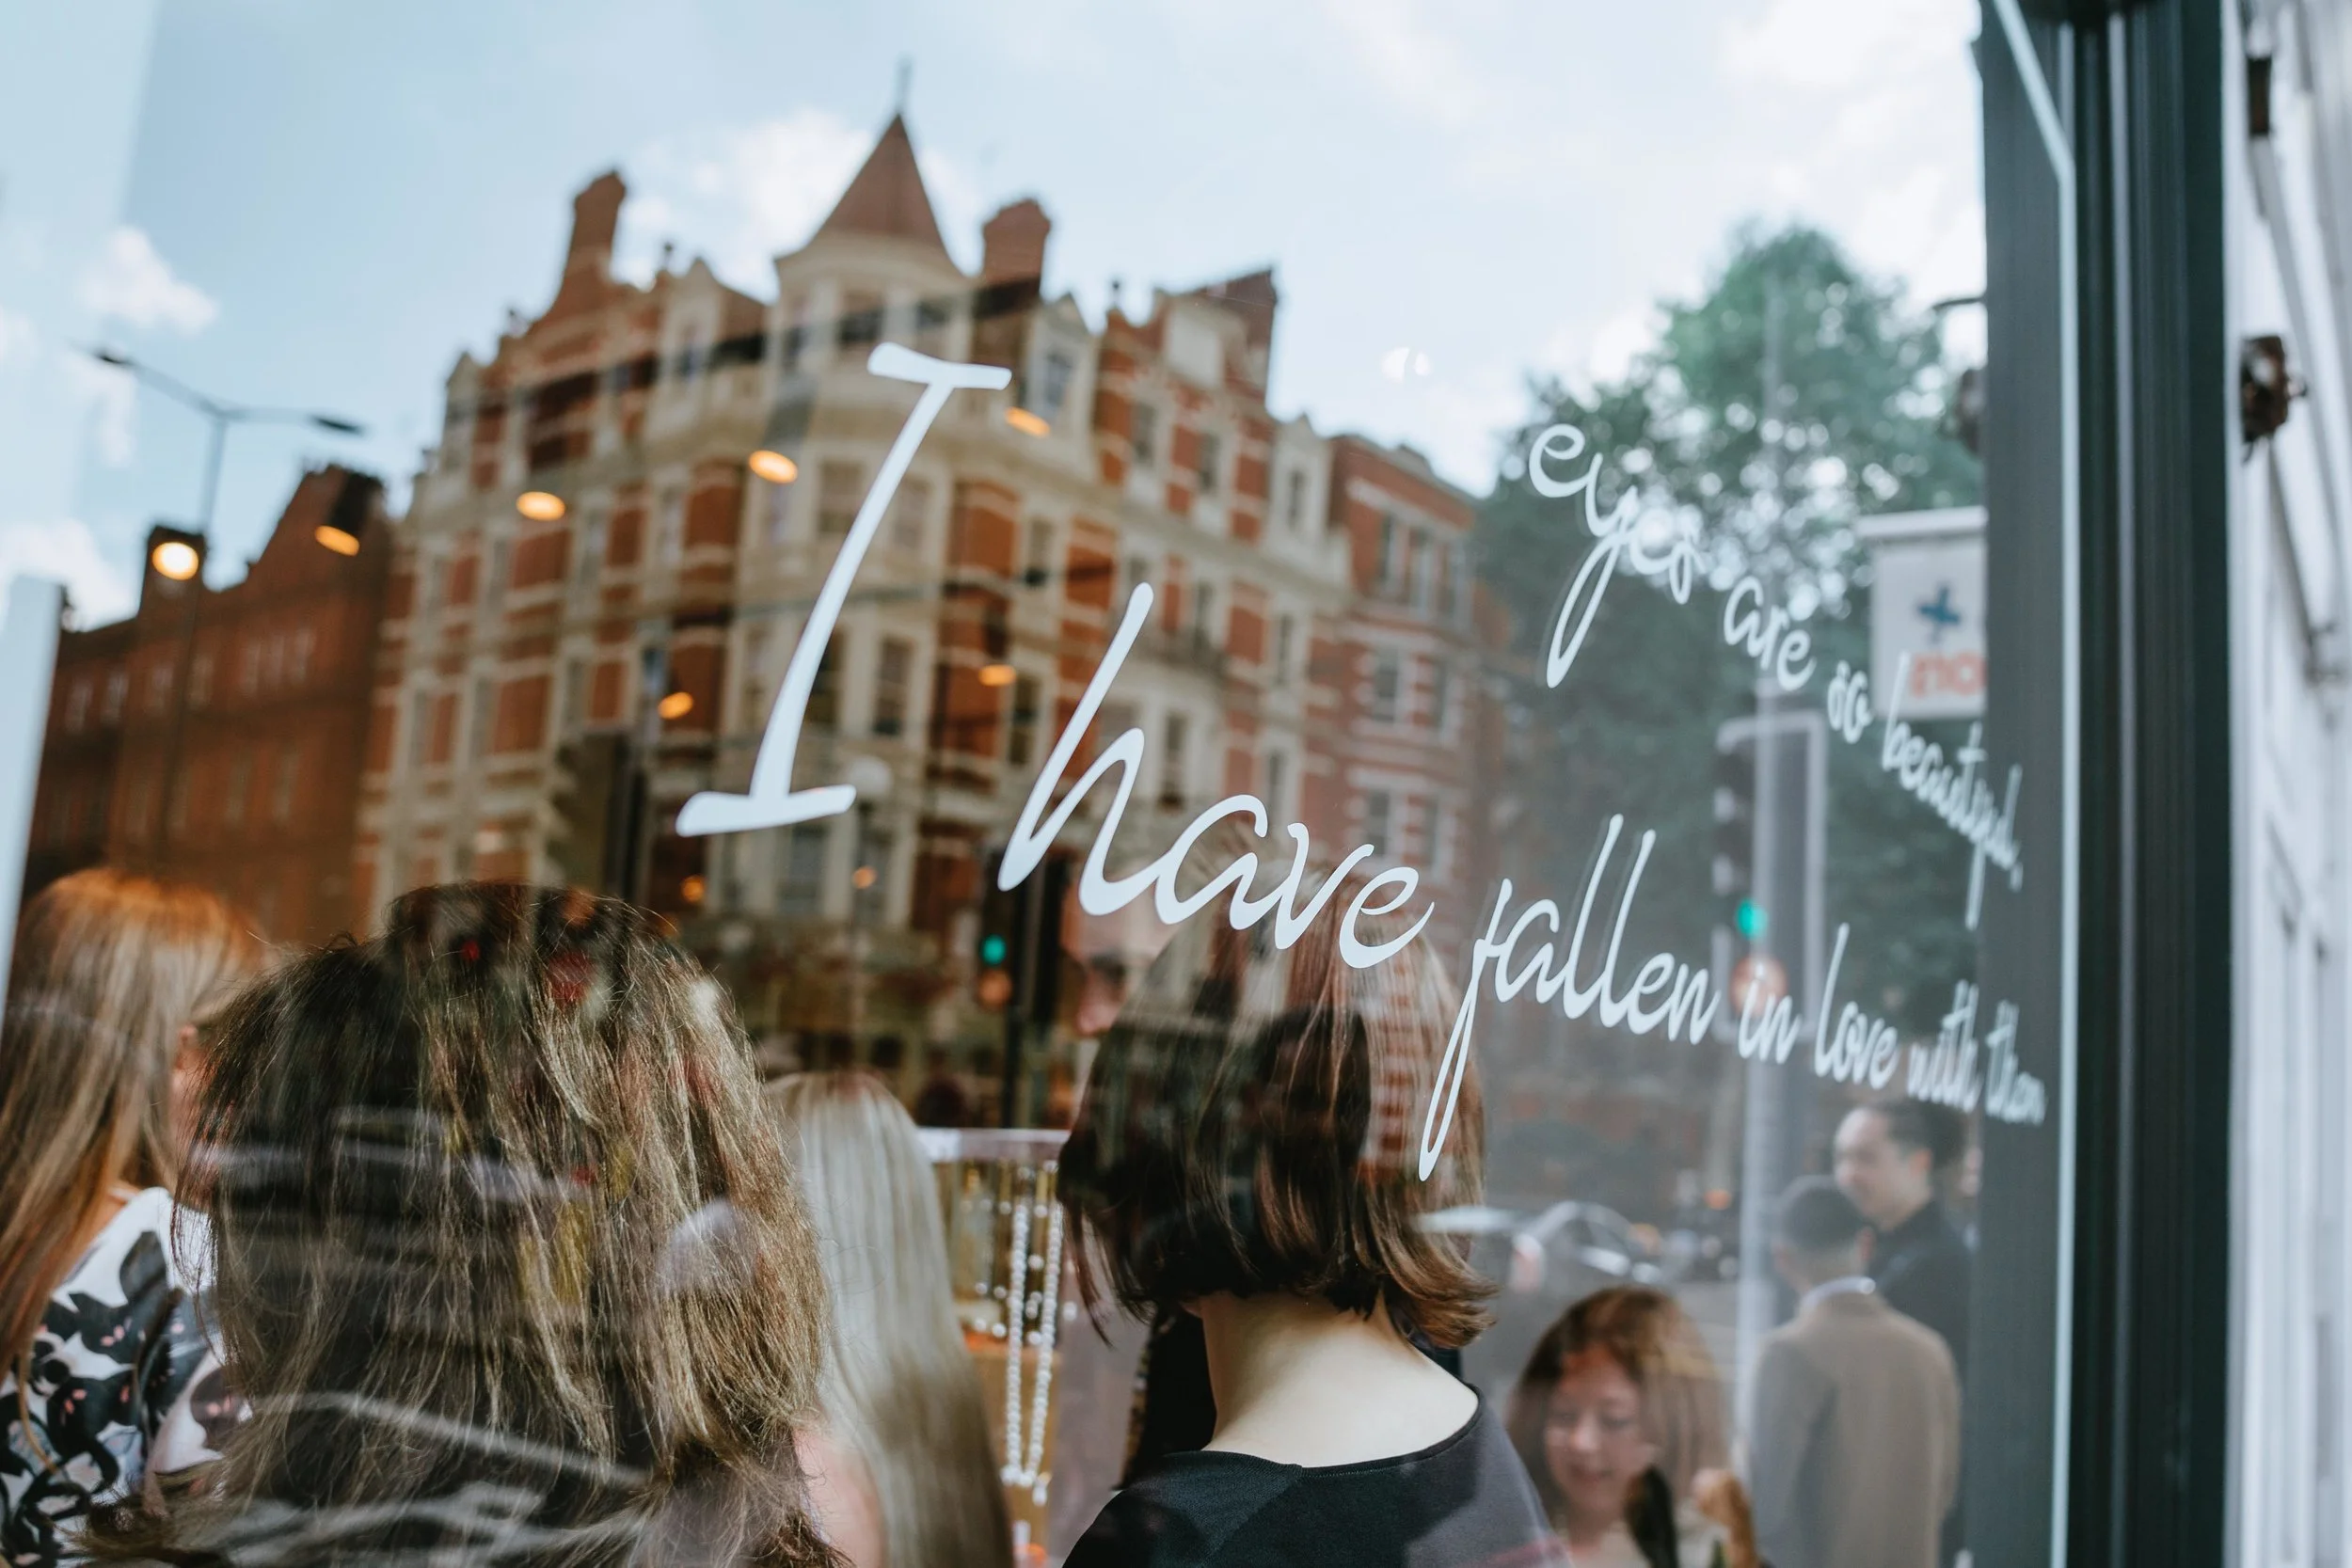 eyes are so beautiful,
I have fallen in love with them
no